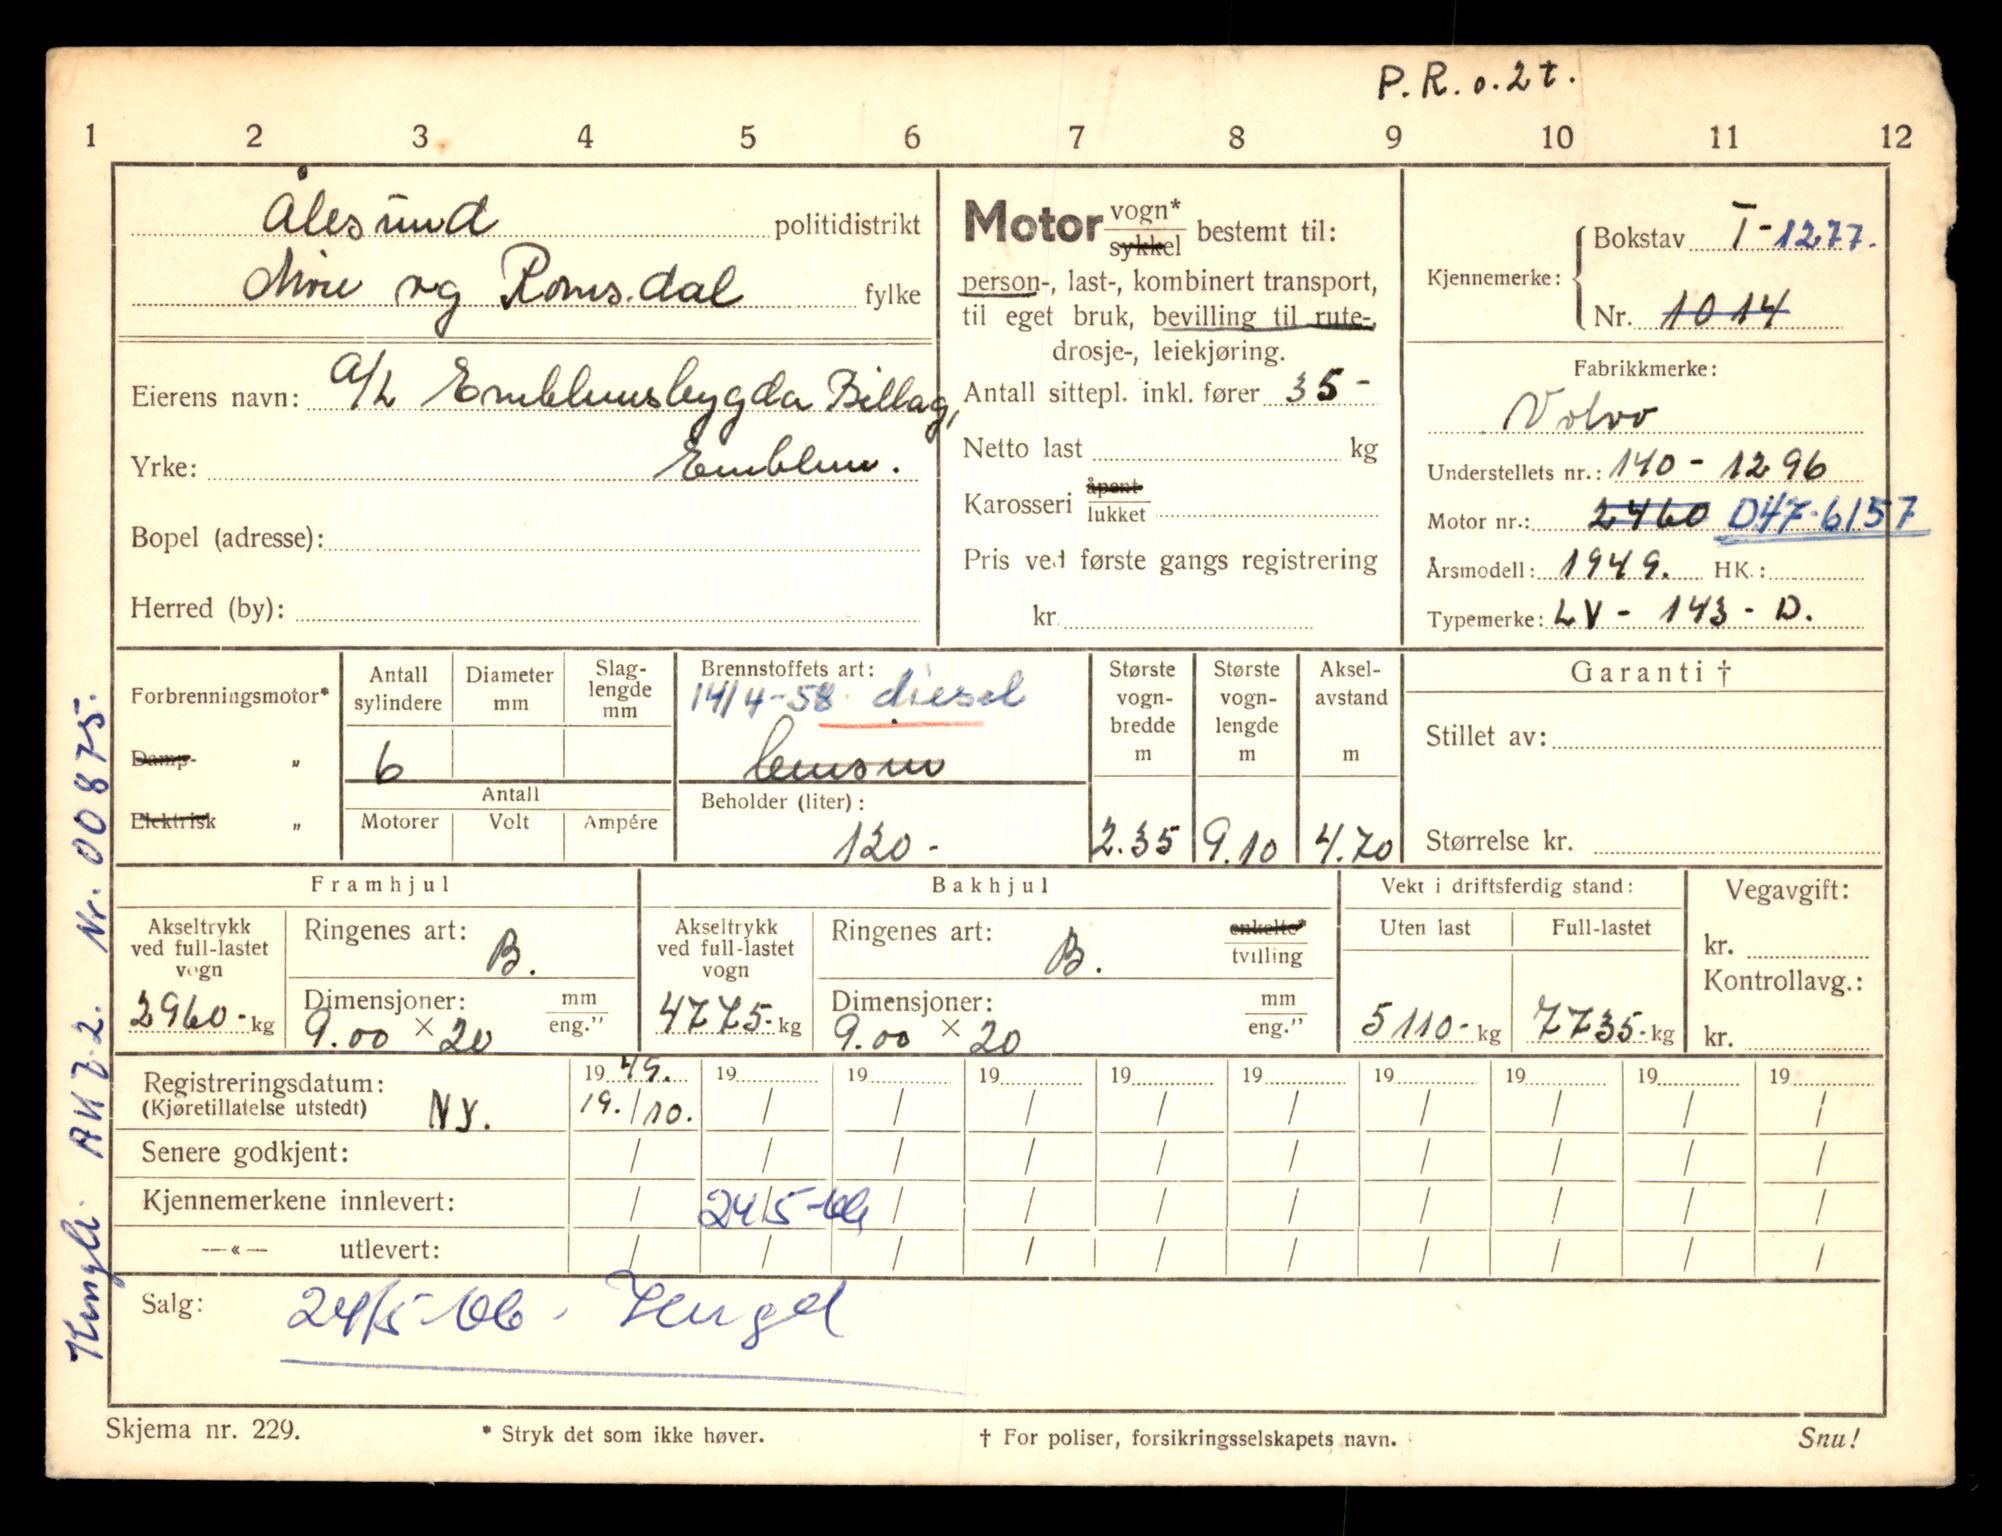 P. R. o. 2 t.
1 2 3 4 5 6 7 8 9 10 11 12
Ålesund politidistrikt
Møre og Romsdal fylke
Eierens navn: A/L Emblemsbygda Billag,
Yrke: Emblem.
Bopel (adresse):
Herred (by):
Motor vogn* sykkel bestemt til:
person-, last-, kombinert transport,
til eget bruk, bevilling til rute-,
drosje-, leiekjøring.
Antall sittepl. inkl. fører 35-
Netto last kg
Karosseri åpent lukket
Pris ved første gangs registrering
kr.
Kjennemerke: Bokstav T-1277.
Nr. 1014
Fabrikkmerke:
Volvo
Understellets nr.: 140 - 1296
Motor nr.: 2460 D47-6157
Årsmodell: 1949. HK.:
Typemerke: LV - 143 - D.
Forbrenningsmotor*
Damp- „
Elektrisk „
Antall sylindere
6
Diameter mm
Slag-
lengde
mm
Antall
Motorer Volt Ampére
Brennstoffets art:
14/4-58. diesel
bensin
Beholder (liter):
120-
Største
vogn-
bredde
m
2.35
Største
vogn-
lengde
m
9.10
Aksel-
avstand
m
4.70
Garanti †
Stillet av:
Størrelse kr.
Framhjul
Akseltrykk
ved full-lastet
vogn
2960- kg
Ringenes art: B.
Dimensjoner: mm eng."
9.00 × 20
Bakhjul
Akseltrykk
ved full-lastet
vogn
4775- kg
Ringenes art: B. enkelte* tvilling
Dimensjoner: mm eng."
9.00 × 20
Vekt i driftsferdig stand:
Uten last Full-lastet
5110- kg 7735- kg
Vegavgift:
kr.
Kontrollavg.:
kr.
Registreringsdatum: 19 49. 19 19 19 19 19 19 19 19 19
(Kjøretillatelse utstedt) NY. 19./10. / / / / / / / / /
Senere godkjent: / / / / / / / / / /
Kjennemerkene innlevert: / 24/5-66 / / / / / / / /
—«— utlevert: / / / / / / / / / /
Salg: 24/5-66.
Skjema nr. 229. * Stryk det som ikke høver. † For poliser, forsikringsselskapets navn. Snu!
Nr. 00875.